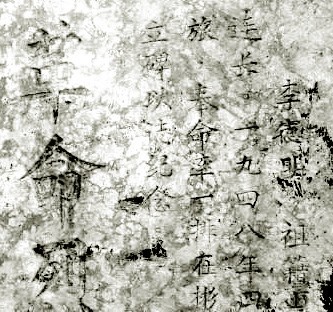 李德明，祖籍
连长。一九四八年四
旅，奉命率一排在彬
立碑以志纪念
革命烈